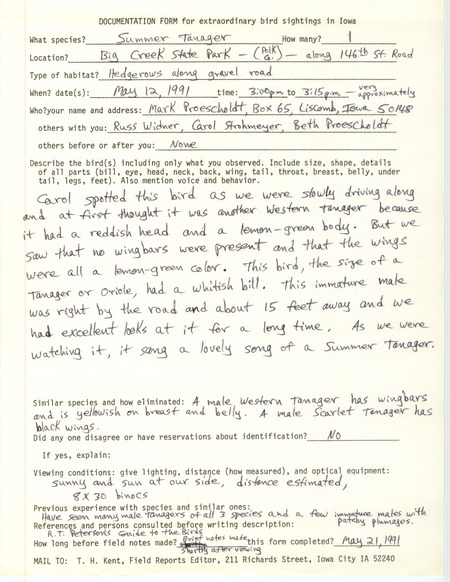 DOCUMENTATION FORM for extraordinary bird sightings in Iowa
What species? Summer Tanager How many? 1
Location? Big Creek State Park - (Polk Co.) - along 146th St. Road
Type of habitat? Hedgerows along gravel road
When? date(s): May 12, 1991 time: 3:00pm to 3:15pm - very approximately
Who?your name and address: Mark Proescholdt, Box 65, Liscomb, Iowa 50148
others with you: Russ Widner, Carol Strohmeyer, Beth Proescholdt
others before or after you: None
Describe the bird(s) including only what you observed. Include size, shape, details
of all parts (bill, eye, head, neck, back, wing, tail, throat, breast, belly, under
tail, legs, feet). Also mention voice and behavior.
Carol spotted this bird as we were slowly driving along
and at first thought it was another Western Tanager because
it had a reddish head and a lemon-green body. But we
saw that no wingbars were present and that the wings
were all a lemon-green color. This bird, the size of a
Tanager or Oriole, had a whitish bill. This immature male
was right by the road and about 15 feet away and we
had excellent looks at it for a long time. As we were
watching it, it sang a lovely song of a Summer Tanager.
Similar species and how eliminated: A male Western Tanager has wingbars
and is yellowish on breast and belly. A male Scarlet Tanager has
black wings.
Did any one disagree or have reservations about identification? No
If yes, explain:
Viewing conditions: give lighting, distance (how measured), and optical equipment:
sunny and sun at our side, distance estimated,
8 X 30 binocs
Previous experience with species and similar ones:
Have seen many male tanagers of all 3 species and a few immature males with
patchy plumages.
References and persons consulted before writing description:
R.T. Peterson's Guide to the Birds
How long before field notes made? Brief notes made shortly after viewing this form completed? May 21, 1991
MAIL TO: T. H. Kent, Field Reports Editor, 211 Richards Street, Iowa City IA 52240